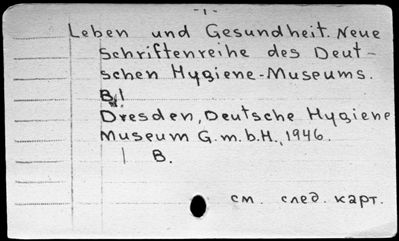 - 1 -
Leben und Gesundheit. Neue
Schriftenreihe des Deut-
schen Hygiene-Museums.
B!
Dresden, Deutsche Hygiene
Museum G.m.b.H., 1946.
B.
см. след. карт.